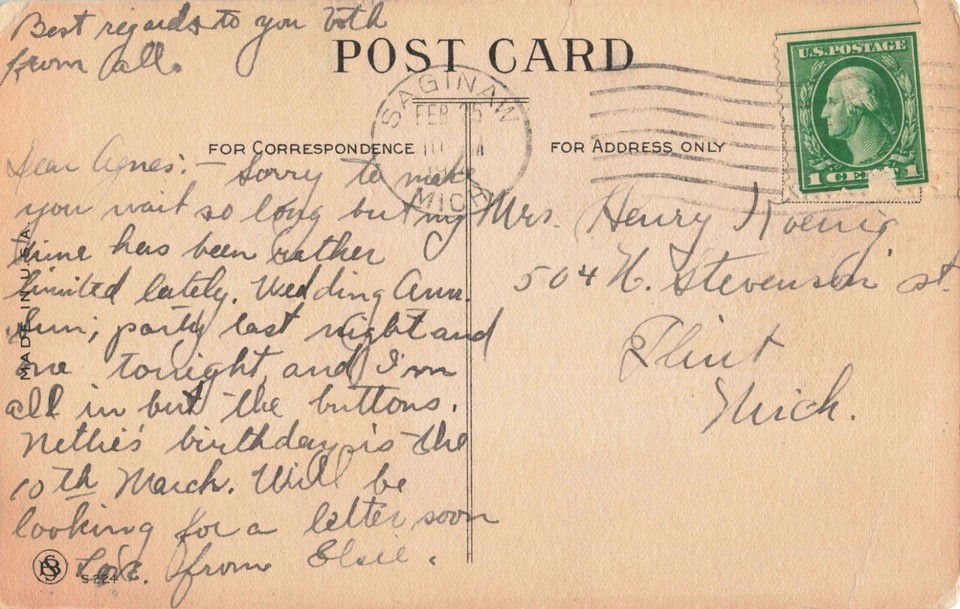 Best regards to you both
from all.
POST CARD
U.S. POSTAGE
1 CENT 1
SAGINAW
FEB 25
MICH
FOR CORRESPONDENCE
FOR ADDRESS ONLY
Dear Agnes: - Sorry to make
you wait so long but my
time has been rather
limited lately. Wedding Ann.
Sun; party last night and
one tonight and I'm
all in but the buttons.
Nettie's birthday is the
10th March. Will be
looking for a letter soon
Love. from Elsie.
Mrs. Henry Koenig
504 N. Stevenson st.
Flint
Mich.
MADE IN U.S.A.
S-224